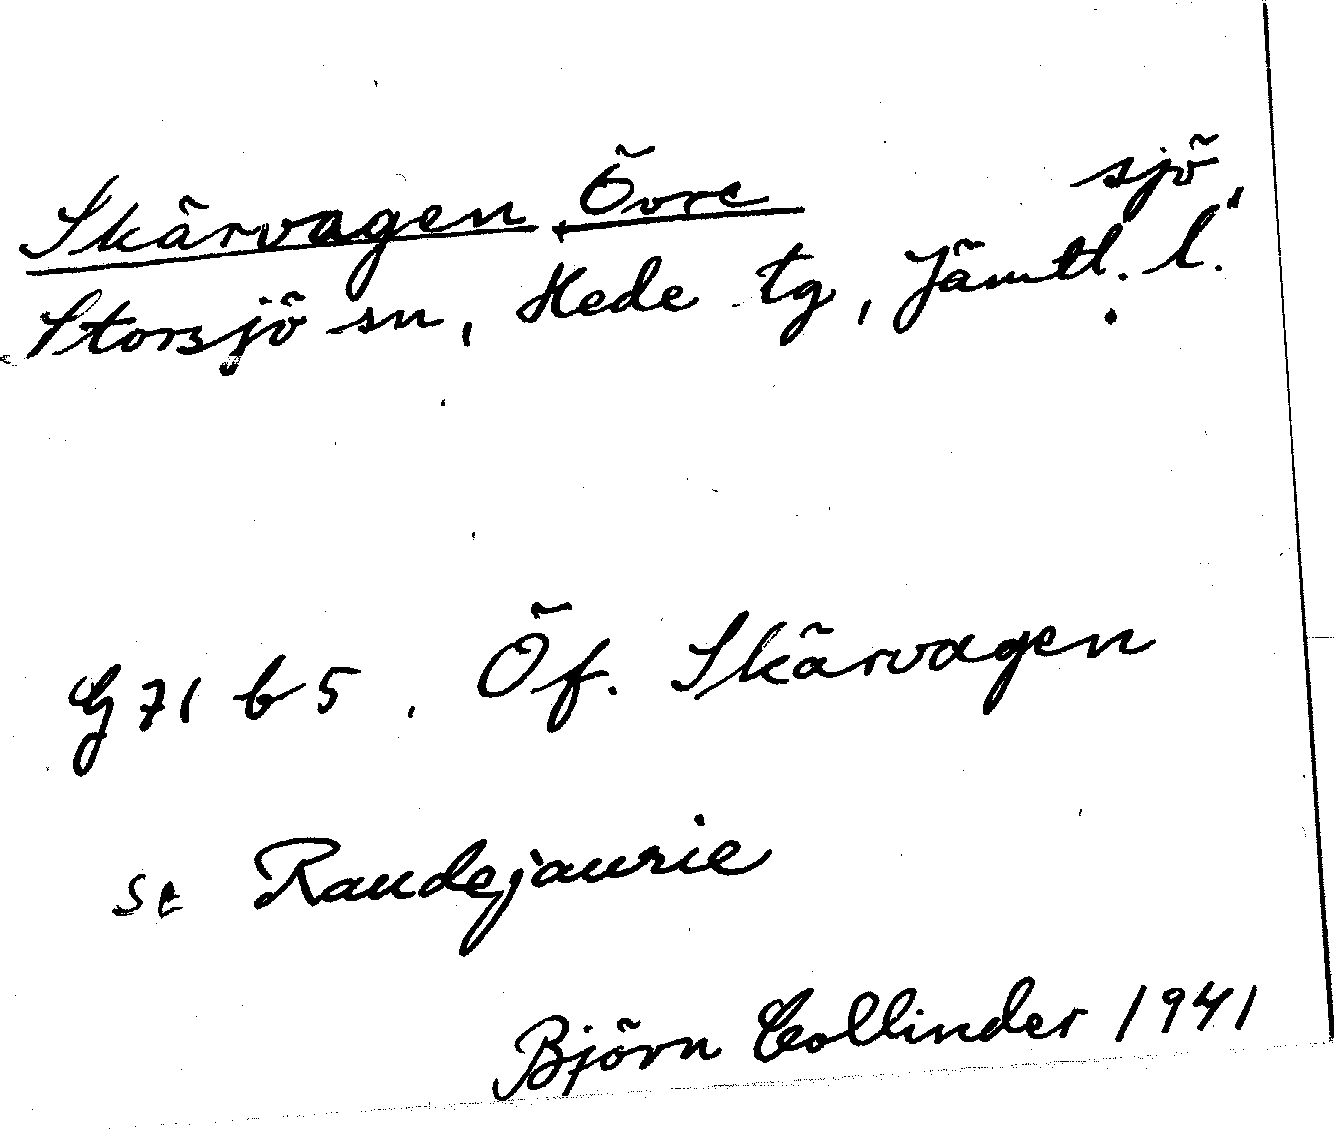 Skärvagen, Övre sjö
Storsjö sn, Hede tg, Jämtl. l.
G 71 b 5. Öf. Skärvagen
se Raudejaurie
Björn Collinder 1941